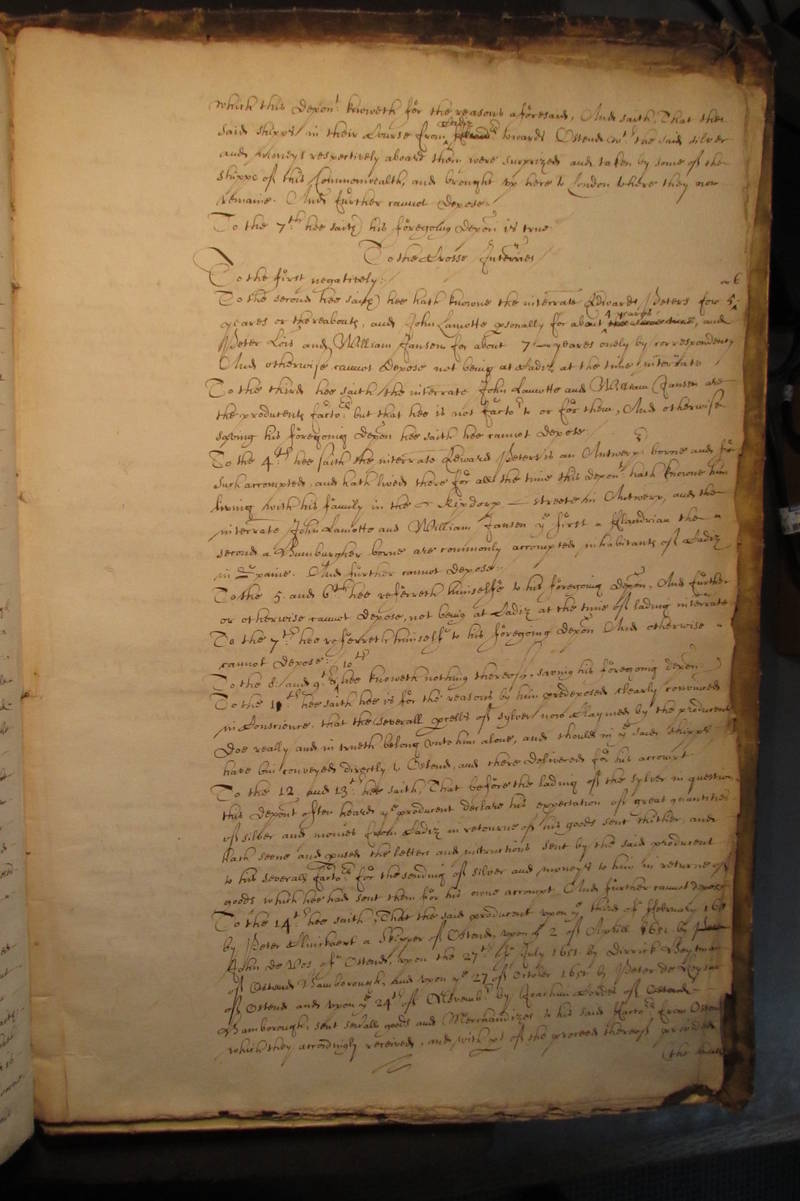 which this depon:t knoweth for the reasons aforesaid, And saith, That the
said shipps in their Course from Cadiz towards Ostend w:th the said silver
and moneys respectively aboard them were surprized and taken by some of the
shipps of this Commonwealth, and brought up here to London where they now
remaine. And further cannot depose.
To the 7:th hee saith his foregoing depon is true
To the Crosse Interries
To the first negatively.
To the second hee saith hee hath knowne the interrate Edward Peters for 5 or 6
yeares or thereabouts, and John Lamotte psonally for about 4 yeares, and
Peter Lois and William Jansen for about 7 yeares onely by correspondency
And otherwise cannot depose not being at Cadiz at the time interrate
To the third hee saith the interrate John Lamotte and William Jansen are
the producents factors but that hee is not factor to or for them, And otherwise
saving his foregoing depon hee saith hee cannot depose
To the 4:th hee saith the interrate Edward Peters is an Antwerper borne and for
such accompted, and hath lived there for all the time this depon:t hath knowne him
living with his family in the Kipdorp streete in Antwerp, and the
interrate John Lamotte and William Jansen y:e first a Flandrian the
second a Hamburgher borne are commonly accompted inhabitants of Cadiz
in Spaine. And further cannot depose
To the 5. and 6:th hee referreth himselfe to his foregoing depon, And further
or otherwise cannot depose, not being at Cadiz at the time of lading interrate
To the 7:th hee referreth himselfe to his foregoing depon And otherwise
cannot depose.
To the 8: and 9:th 10:th hee knoweth nothing thereof, saving his foregoing depon
To the 11:th hee saith hee is for the reasons by him predeposed clearly convinced
in Conscience, that the severall pcells of sylver now claymed by the producent
doe really and in trueth belong unto him alone, and should in y:e said shipps
have bin conveyed directly to Ostend, and there delivered for his accompt
To the 12. and 13:th hee saith, That before the lading of the sylver in question
this depont often heard y:e producent declare his expectation of great quantities
of silver and monies from Cadiz in returne of his goods sent thither, and
hath seene and pused the letters and instructions sent by the said producent
to his severall factors for the sending of silver and moneys to him in returne of
goods which hee had sent them for his owne accompt And further cannot depose
To the 14:th hee saith, That the said producent upon y:e third of ffebruary
by Peter a Skipper of Ostend, upon y:e 2 of Aprill 1651. by
John de Vos of Ostend, upon the 27:th of July 1651. by Dirrick
of Ostend Hamborough, and upon y:e 27 of October 1651 by Peter de
of Ostend and upon y:e 24:th of Novemb:r by Joachim of Ostend
Hamborough, sent severall goods and Merchandizes to his said factors from Ostend
which they accordingly received, and with pt of the proceed thereof provided
(the